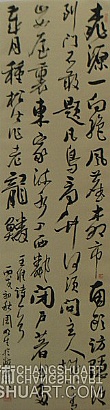 桃源一向絕風塵柳市南頭訪隱淪
到門不敢題凡鳥看竹何須問主人城外青
山如屋裏東家流水入西鄰閉戶著書多
歲月種松皆作老龍鱗
王維詩